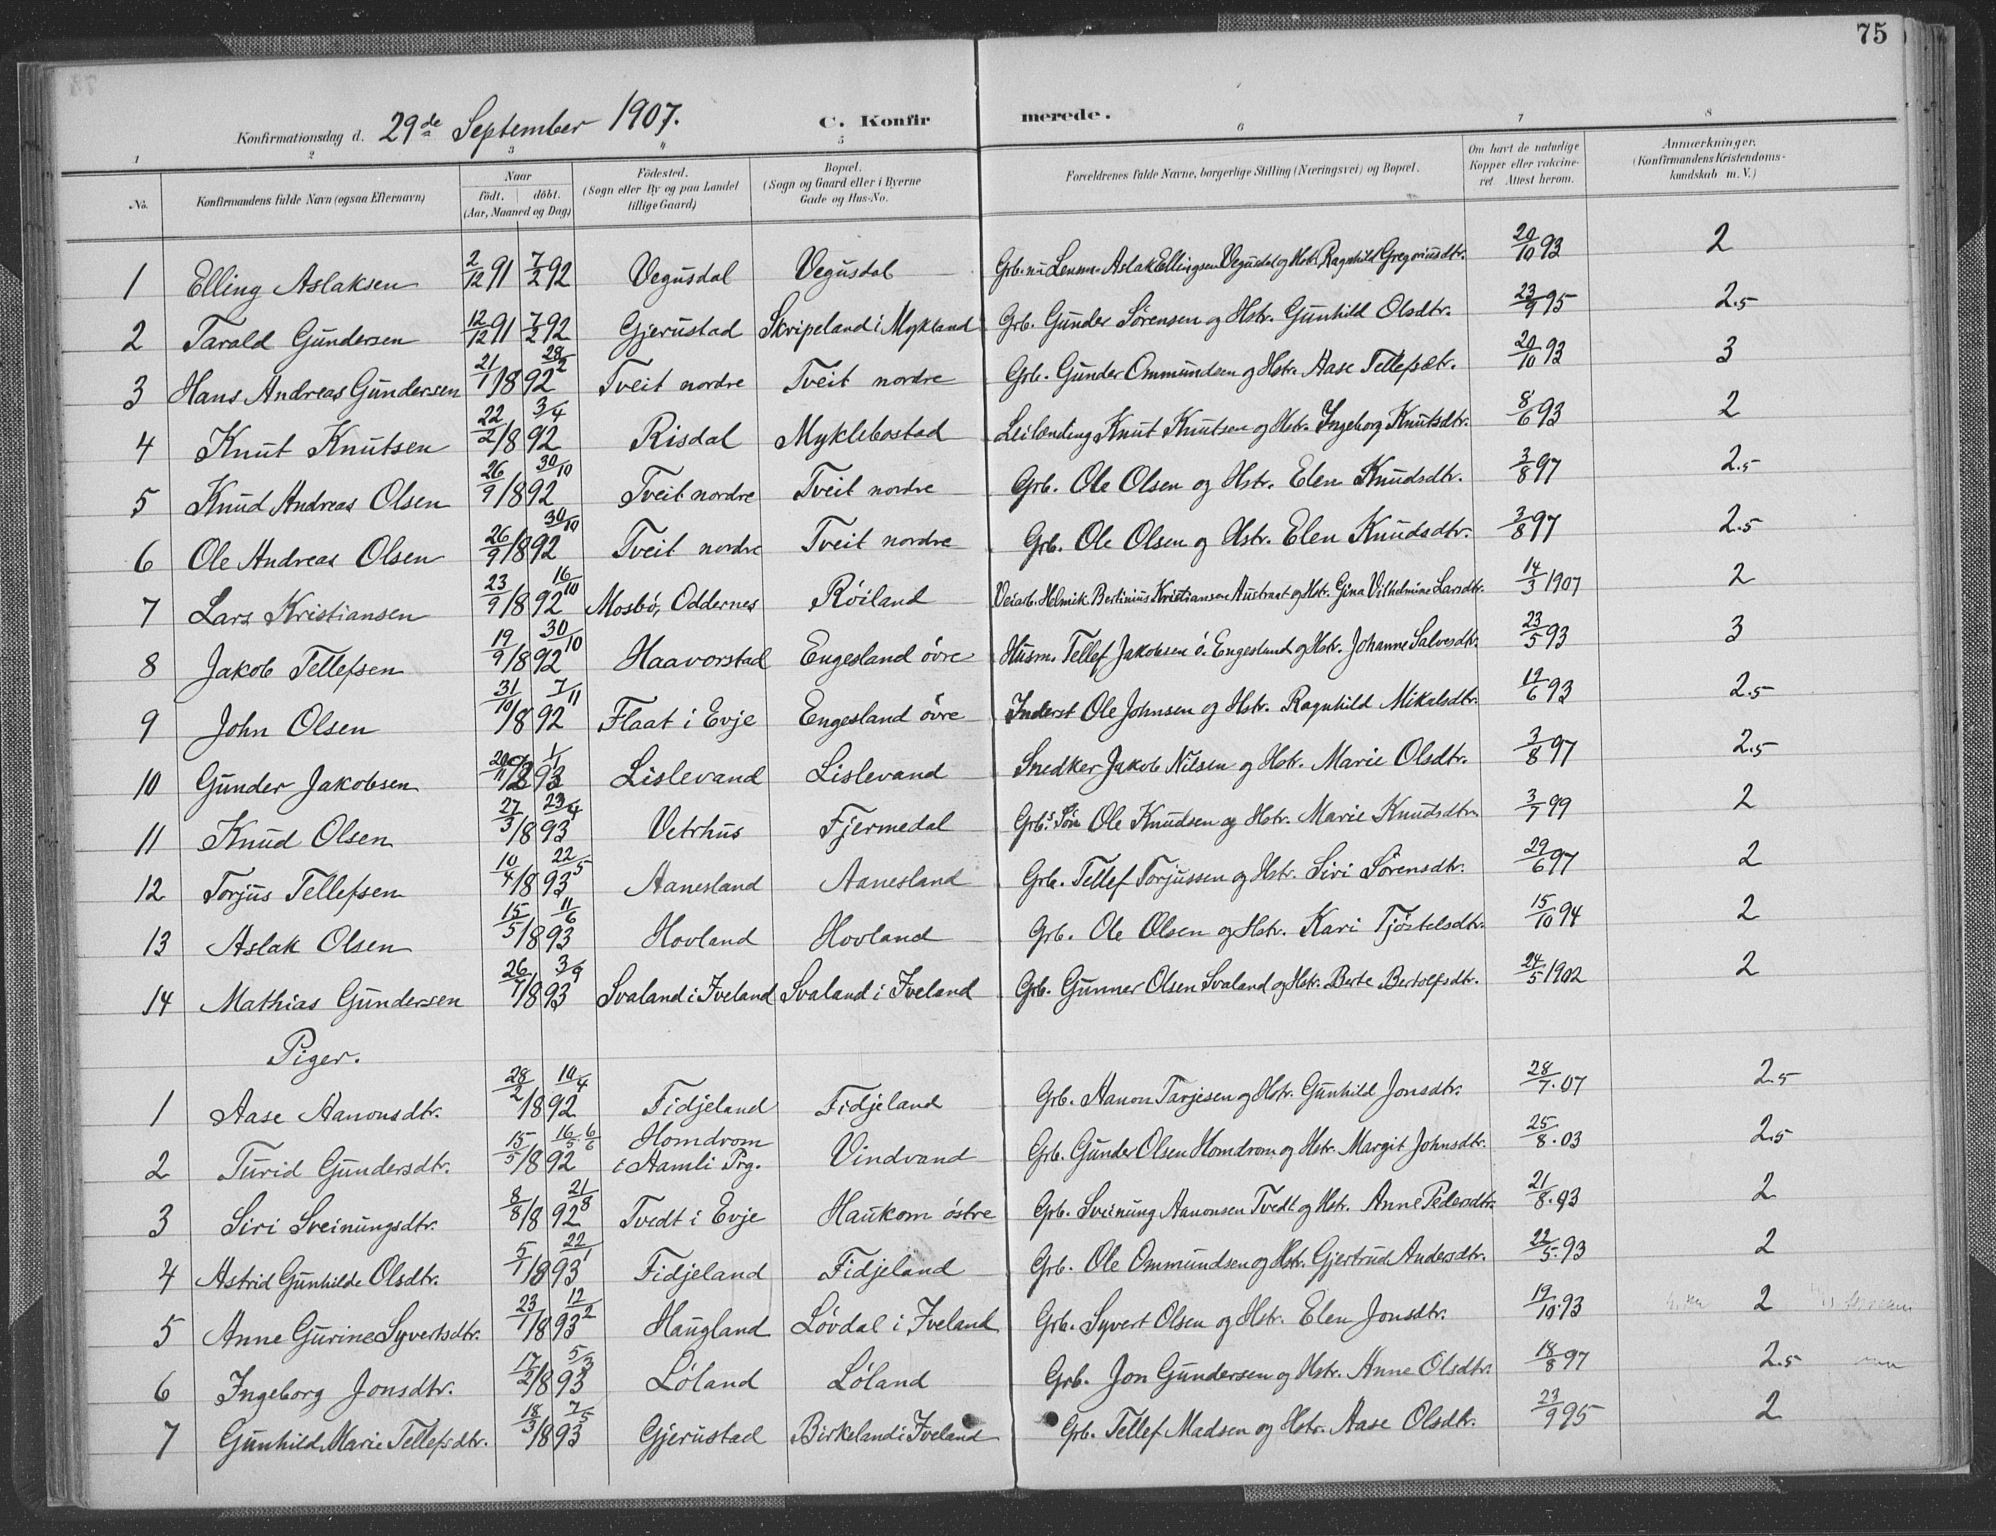 75
Konfirmationsdag d. 29de September 1907. C. Konfirmerede.
1 2 3 4 5 6 7 8
No. Konfirmandens fulde Navn (ogsaa Efternavn) Naar født. døbt. (Aar, Maaned og Dag) Fødested. (Sogn eller By og paa Landet tillige Gaard) Bopæl. (Sogn og Gaard eller i Byerne Gade og Hus-No. Forældrenes fulde Navne, borgerlige Stilling (Næringsvei) og Bopæl. Om havt de naturlige Kopper eller vakcineret. Attest herom. Anmærkninger. (Konfirmandens Kristendomskundskab m. V.)
1 Elling Aslaksen 2/12 91 7/2 92 Vegusdal Vegusdal Grb. Lensm. Aslak Ellingsen Vegusdal og Hstr. Ragnhild Gregoriusdtr. 20/10 93 2
2 Tarald Gundersen 12/12 91 7/2 92 Gjerustad Skripeland i Mykland Grb. Gunder Sørensen og Hstr. Gunhild Olsdtr. 23/9 95 2.5
3 Hans Andreas Gundersen 21/1 1892 28/2 Tveit nordre Tveit nordre Grb. Gunder Ommundsen og Hstr. Aase Tellefsdtr. 20/10 93 3
4 Knut Knutsen 22/2 1892 3/4 Risdal Myklebostad Leilænding Knut Knutsen og Hstr. Ingeborg Knutsdtr. 8/6 93 2
5 Knud Andreas Olsen 26/9 1892 30/10 Tveit nordre Tveit nordre Grb. Ole Olsen og Hstr. Elen Knudsdtr. 3/8 97 2.5
6 Ole Andreas Olsen 26/9 1892 30/10 Tveit nordre Tveit nordre Grb. Ole Olsen og Hstr. Elen Knudsdtr. 3/8 97 2.5
7 Lars Kristiansen 23/9 1892 16/10 Mosbø, Oddernes Røiland Veiarb. Helmik Bertinius Kristiansen Austraat og Hstr. Gina Vilhelmine Larsdtr. 14/3 1907 2
8 Jakob Tellefsen 19/9 1892 30/10 Haavorstad Engesland øvre Husm. Tellef Jakobsen ø. Engesland og Hstr. Johanne Salvesdtr. 23/5 93 3
9 John Olsen 31/10 1892 7/11 Flaat i Evje Engesland øvre Inderst Ole Johnsen og Hstr. Ragnhild Mikalsdtr. 19/6 93 2.5
10 Gunder Jakobsen 20/11 1/1 93 Lislevand Lislevand Snedker Jakob Nilsen og Hstr. Marie Olsdtr. 3/8 97 2.5
11 Knud Olsen 27/3 1893 23/4 Vetrhus Fjermedal Grb.s Søn Ole Knudsen og Hstr. Marie Knudsdtr. 3/7 99 2
12 Torjus Tellefsen 10/4 1893 22/5 Aanesland Aanesland Grb. Tellef Torjussen og Hstr. Siri Sørensdtr. 29/6 97 2
13 Aslak Olsen 15/5 1893 11/6 Hovland Hovland Grb. Ole Olsen og Hstr. Kari Tjøstelsdtr. 15/10 94 2
14 Mathias Gundersen 26/7 1893 3/9 Svaland i Iveland Svaland i Iveland Grb. Gunner Olsen Svaland og Hstr. Berte Bertolfsdtr. 24/5 1902 2
Piger.
1 Aase Aanonsdtr. 28/2 1892 10/4 Fidjeland Fidjeland Grb. Aanon Tarjesen og Hstr. Gunhild Jonsdtr. 28/7. 07 2.5
2 Turid Gundersdtr. 15/5 1892 16/5 6/6 Homdrom i Aamli Prg. Vindvand Grb. Gunder Olsen Homdrom og Hstr. Margit Johnsdtr. 25/8. 03 2.5
3 Siri Sveinungsdtr. 8/8 1892 21/8 Tvedt i Evje Haukom østre Grb. Sveinung Aanonsen Tvedt og Hstr. Anne Pedersdtr. 21/8. 93 2
4 Astrid Gunhilde Olsdtr. 5/1 1893 22/1 Fidjeland Fidjeland Grb. Ole Ommundsen og Hstr. Gjertrud Andersdtr. 22/5. 93 2
5 Anne Gurine Syvertsdtr. 23/1 1893 12/2 Haugland Løvdal i Iveland Grb. Syvert Olsen og Hstr. Elen Jonsdtr. 19/10 93 2
6 Ingeborg Jonsdtr. 17/2 1893 5/3 Løland Løland Grb. Jon Gundersen og Hstr. Anne Olsdtr. 18/8 97 2.5
7 Gunhild Marie Tellefsdtr. 18/3 1893 7/5 Gjerustad Birkeland i Iveland Grb. Tellef Madsen og Hstr. Aase Olsdtr. 23/9 95 2